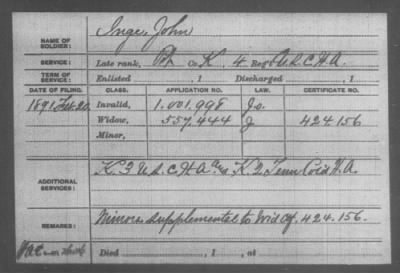 NAME OF SOLDIER: Inge, John
SERVICE: Late rank, Pvt Co. K, 4 Reg't U.S.C.H.A.
TERM OF SERVICE: Enlisted , 1 Discharged , 1
DATE OF FILING. CLASS. APPLICATION NO. LAW. CERTIFICATE NO.
1891, Feb. 20 Invalid, 1.001.998
Widow, 557.444 424.156
Minor,
ADDITIONAL SERVICES: K. 3 U.S.C.H.A. K. 2 Tenn Cold H.A.
REMARKS: Minors supplemental to Wid cf. 424.156.
Died , 1 , at